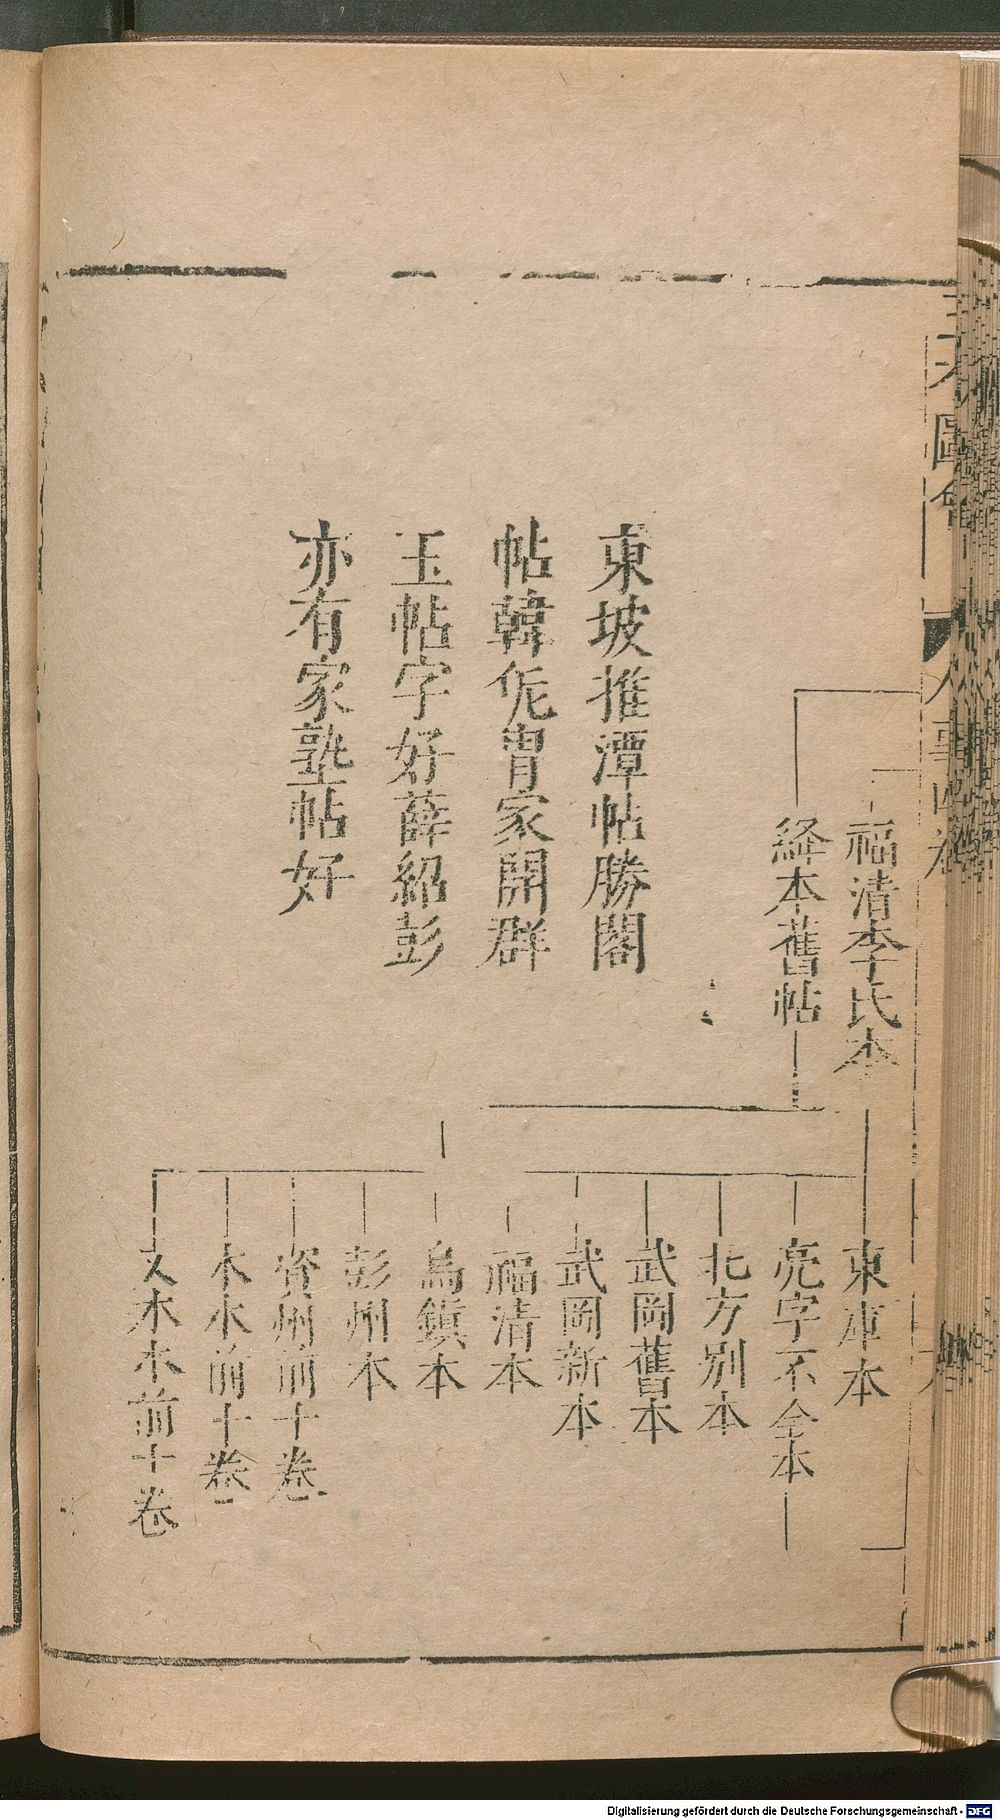 三才圖會
人事四卷
福清李氏本
絳本舊帖
東坡推潭帖勝閣
帖韓侂冑家開群
玉帖字好薛紹彭
亦有家塾帖好
東庫本
亮字不全本
北方別本
武岡舊本
武岡新本
福清本
烏鎮本
彭州本
資州前十卷
木本前十卷
又木本前十卷
Digitalisierung gefördert durch die Deutsche Forschungsgemeinschaft - DFG